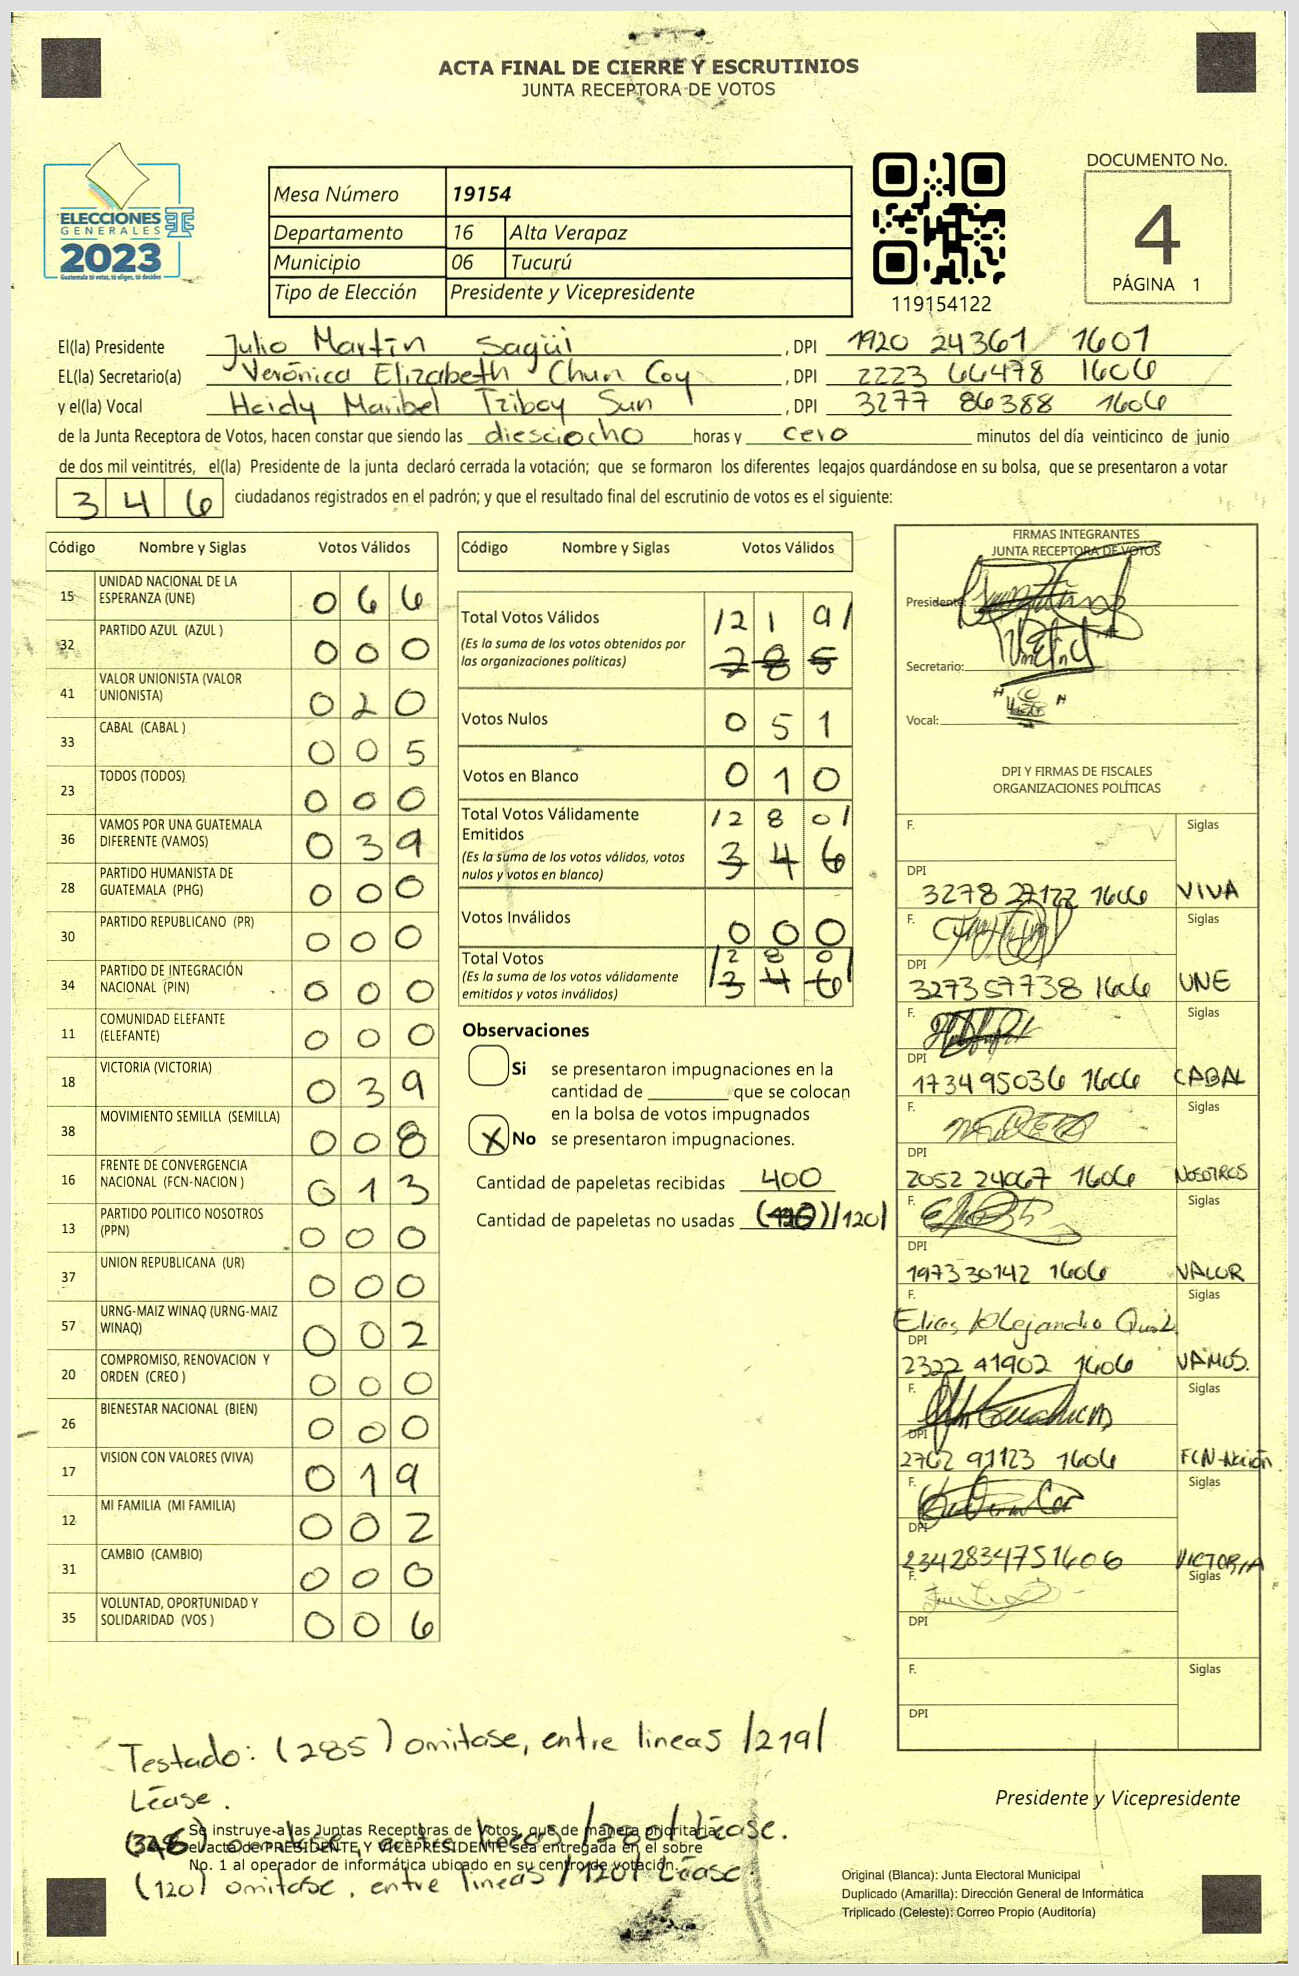 ACTA FINAL DE CIERRE Y ESCRUTINIOS
JUNTA RECEPTORA DE VOTOS
ELECCIONES
GENERALES
2023
Guatemala tú votas, tú eliges, tú decides
Mesa Número 19154
Departamento 16 Alta Verapaz
Municipio 06 Tucurú
Tipo de Elección Presidente y Vicepresidente
119154122
DOCUMENTO No.
4
PÁGINA 1
El(la) Presidente Julio Martín Sagüi , DPI 1920 24361 1601
EL(la) Secretario(a) Verónica Elizabeth Chun Coy , DPI 2223 66478 1606
y el(la) Vocal Heidy Maribel Tziboy Sun , DPI 3277 86388 1606
de la Junta Receptora de Votos, hacen constar que siendo las diesciocho horas y cero minutos del día veinticinco de junio
de dos mil veintitrés, el(la) Presidente de la junta declaró cerrada la votación; que se formaron los diferentes legajos guardándose en su bolsa, que se presentaron a votar
346 ciudadanos registrados en el padrón; y que el resultado final del escrutinio de votos es el siguiente:
Código Nombre y Siglas Votos Válidos
15 UNIDAD NACIONAL DE LA ESPERANZA (UNE) 0 6 6
32 PARTIDO AZUL (AZUL ) 0 0 0
41 VALOR UNIONISTA (VALOR UNIONISTA) 0 2 0
33 CABAL (CABAL ) 0 0 5
23 TODOS (TODOS) 0 0 0
36 VAMOS POR UNA GUATEMALA DIFERENTE (VAMOS) 0 3 9
28 PARTIDO HUMANISTA DE GUATEMALA (PHG) 0 0 0
30 PARTIDO REPUBLICANO (PR) 0 0 0
34 PARTIDO DE INTEGRACIÓN NACIONAL (PIN) 0 0 0
11 COMUNIDAD ELEFANTE (ELEFANTE) 0 0 0
18 VICTORIA (VICTORIA) 0 3 9
38 MOVIMIENTO SEMILLA (SEMILLA) 0 0 8
16 FRENTE DE CONVERGENCIA NACIONAL (FCN-NACION ) 0 1 3
13 PARTIDO POLITICO NOSOTROS (PPN) 0 0 0
37 UNION REPUBLICANA (UR) 0 0 0
57 URNG-MAIZ WINAQ (URNG-MAIZ WINAQ) 0 0 2
20 COMPROMISO, RENOVACION Y ORDEN (CREO ) 0 0 0
26 BIENESTAR NACIONAL (BIEN) 0 0 0
17 VISION CON VALORES (VIVA) 0 1 9
12 MI FAMILIA (MI FAMILIA) 0 0 2
31 CAMBIO (CAMBIO) 0 0 0
35 VOLUNTAD, OPORTUNIDAD Y SOLIDARIDAD (VOS ) 0 0 6
Código Nombre y Siglas Votos Válidos
Total Votos Válidos /2 1 9/
(Es la suma de los votos obtenidos por
las organizaciones políticas) 2 8 5
Votos Nulos 0 5 1
Votos en Blanco 0 1 0
Total Votos Válidamente /2 8 0/
Emitidos 3 4 6
(Es la suma de los votos válidos, votos
nulos y votos en blanco)
Votos Inválidos 0 0 0
Total Votos /2 8 0/
(Es la suma de los votos válidamente 3 4 6
emitidos y votos inválidos)
Observaciones
Si se presentaron impugnaciones en la
cantidad de ________ que se colocan
en la bolsa de votos impugnados
X No se presentaron impugnaciones.
Cantidad de papeletas recibidas 400
Cantidad de papeletas no usadas /120/
FIRMAS INTEGRANTES
JUNTA RECEPTORA DE VOTOS
Presidente:
Secretario:
Vocal:
DPI Y FIRMAS DE FISCALES
ORGANIZACIONES POLÍTICAS
F. Siglas
DPI 3278 27122 1606 VIVA
F. Siglas
DPI 3273 57738 1606 UNE
F. Siglas
DPI 1734 95036 1606 CABAL
F. Siglas
DPI 2052 24067 1606 NOSOTROS
F. Siglas
DPI 1973 30142 1606 VALOR
F. Elias Alejandro Siglas
DPI 2322 41902 1606 VAMOS.
F. Siglas
DPI 2762 91123 1606 FCN-Nación
F. Siglas
DPI 2342834751606 VICTORIA
F. Siglas
DPI
F. Siglas
DPI
Testado: (285) omitase, entre lineas /219/
Léase.
(346) omitase, entre lineas /280/ Léase.
(120) omitase, entre lineas /120/ Léase.
Se instruye a las Juntas Receptoras de Votos, que de manera prioritaria
el acta de PRESIDENTE Y VICEPRESIDENTE sea entregada en el sobre
No. 1 al operador de informática ubicado en su centro de votación.
Presidente y Vicepresidente
Original (Blanca): Junta Electoral Municipal
Duplicado (Amarilla): Dirección General de Informática
Triplicado (Celeste): Correo Propio (Auditoría)